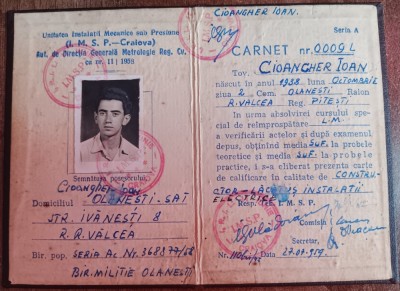 Unitatea Instalatii Mecanice sub Presiune
(I. M. S. P.—Craiova)
Aut. de Direcția Generală Metrologie Reg. Cv.
cu nr. 11 | 1955
Semnătura posesorului,
Cioangher Ioan
Domiciliul OLĂNEȘTI-SAT
STR. IVĂNEȘTI 8
R. R. VÎLCEA
Bir. pop. SERIA Ac Nr. 368877/58
BIR. MILITIE OLANESTI
CIOANGHER IOAN.
Seria A
CARNET nr. 0009
Tov. CIOANGHER IOAN
născut în anul 1938 luna OCTOMBRIE
ziua 2 Com. OLANESTI Raion
R. VÎLCEA Reg. PITEȘTI
In urma absolvirei cursului special
de reîmprospătare L.M.
a verificării actelor și după examenul
depus, obținînd media SUF. la probele
teoretice și media SUF. la probele
practice, i s-a eliberat prezenta carte
de calificare în calitate de CONSTRU-
CTOR-LĂCĂTUȘ INSTALAȚII
ELECTRICE
Resp. I. M. S. P.
Comisia
Secretar,
27.07.959.